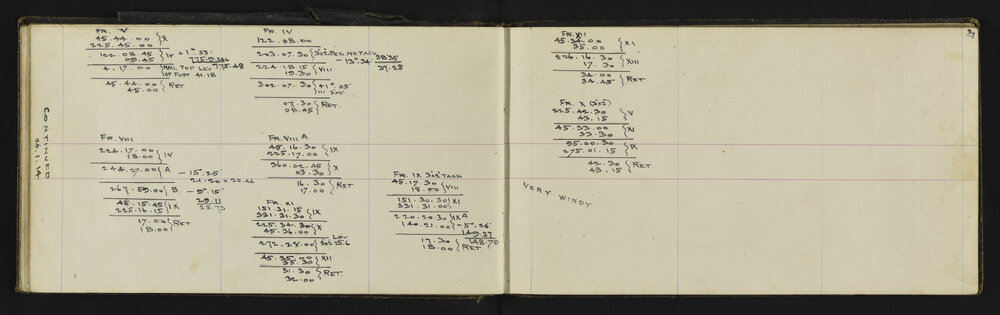 CONTINUED
24.1.44
FR. V
45.44.00 } X
225.45.00
122.08.45 } IV +1° 53'
09.45
4.17.00 { NAIL TOP LEV 775.48
TOP POST 41.18
45.44.00 } RET
45.00
FR. IV
122.08.00
203.07.30 } 3x2 PEG NO TACH
224.18.15 } VIII - 13°.34' 38.35
19.30 37.28
302.07.30 } +1° 05'
III
07.30 } RET.
08.45
FR. VIII
224.17.00 } IV
18.00
244.27.00 } A - 15°.25
21.20 = 20.46
267.59.00 } B - 9°.15'
29.11
28.73
45.15.45 } IX
225.16.15
17.00 } RET
18.00
FR. VIII A
45.16.30 } IX
225.17.00
360.02.45 } X
03.30
16.30 } RET
17.00
FR. XI
151.31.15 } IX
331.31.30
225.34.30 } X
45.36.00
272.28.00 } 3x2 15.6
45.35.00 } XII
35.30
31.30 } RET.
32.00
FR. IX 3x2 TACH
45.17.30 } VIII
18.00
151.30.30 } XI
331.31.00
220.20.30 } IX A
140.21.00 - 5°.26'
149.37
148.70
17.30 } RET.
18.00
39
FR XII
45.34.00 } XI
35.00
226.16.30 } XIII
17.30
34.00 } RET
34.45
FR. X (3x2)
225.42.30 } V
43.15
45.33.00 } XI
33.30
95.00.30 } IX
275.01.15
42.30 } RET
43.15
VERY WINDY